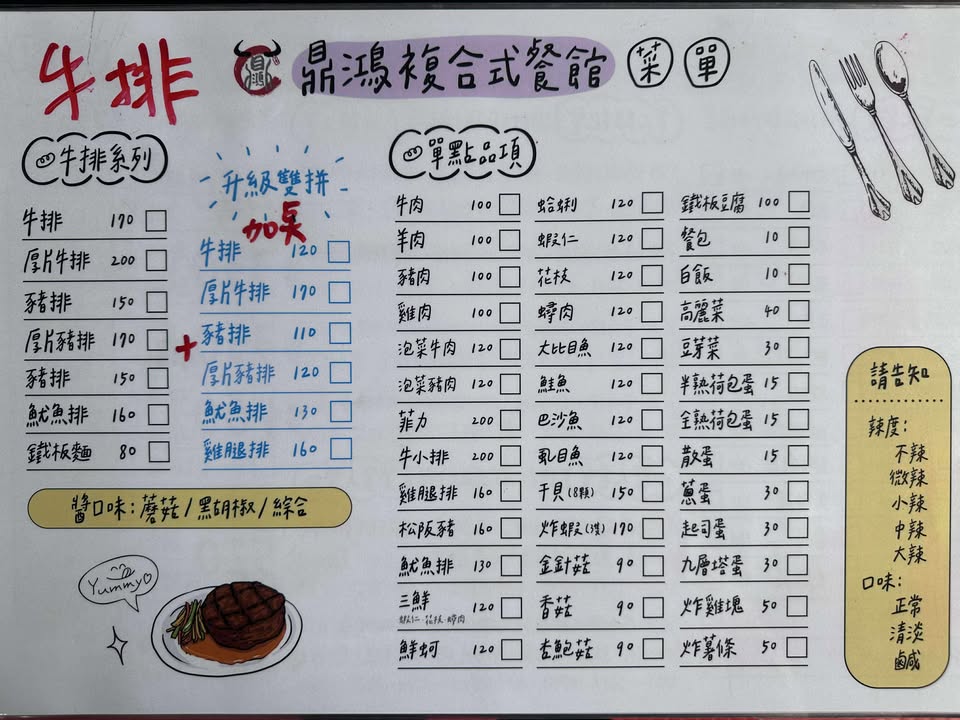 牛排
鼎鴻
鼎鴻複合式餐館 菜單
牛排系列
牛排 170
厚片牛排 200
豬排 150
厚片豬排 170
豬排 150
魷魚排 160
鐵板麵 80
升級雙拼
加點
+
牛排 120
厚片牛排 170
豬排 110
厚片豬排 120
魷魚排 130
雞腿排 160
醬口味:蘑菇/黑胡椒/綜合
Yummy
單點品項
牛肉 100
羊肉 100
豬肉 100
雞肉 100
泡菜牛肉 120
泡菜豬肉 120
菲力 200
牛小排 200
雞腿排 160
松阪豬 160
魷魚排 130
三鮮 120
蝦仁·花枝·蟳肉
鮮蚵 120
蛤蜊 120
蝦仁 120
花枝 120
蟳肉 120
大比目魚 120
鮭魚 120
巴沙魚 120
虱目魚 120
干貝(8顆) 150
炸蝦(3隻) 170
金針菇 90
香菇 90
杏鮑菇 90
鐵板豆腐 100
餐包 10
白飯 10
高麗菜 40
豆芽菜 30
半熟荷包蛋 15
全熟荷包蛋 15
散蛋 15
蔥蛋 30
起司蛋 30
九層塔蛋 30
炸雞塊 50
炸薯條 50
請告知
辣度:
不辣
微辣
小辣
中辣
大辣
口味:
正常
清淡
鹹